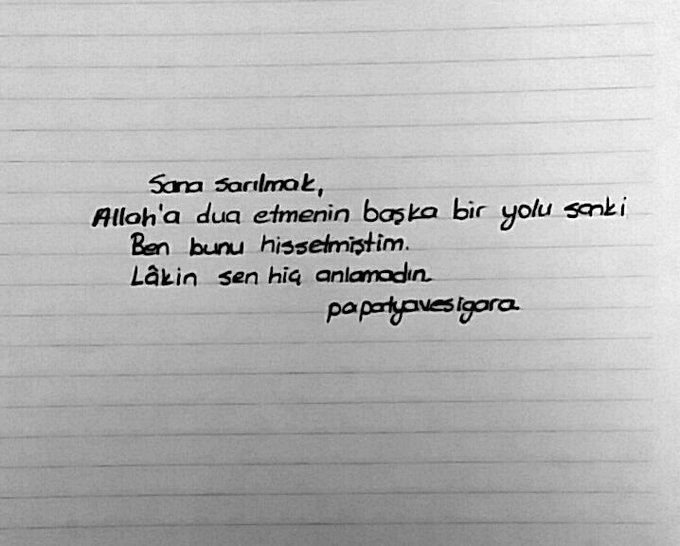 Sana sarılmak,
Allah'a dua etmenin başka bir yolu sanki
Ben bunu hissetmiştim.
Lâkin sen hiç anlamadın
papatyavesigara